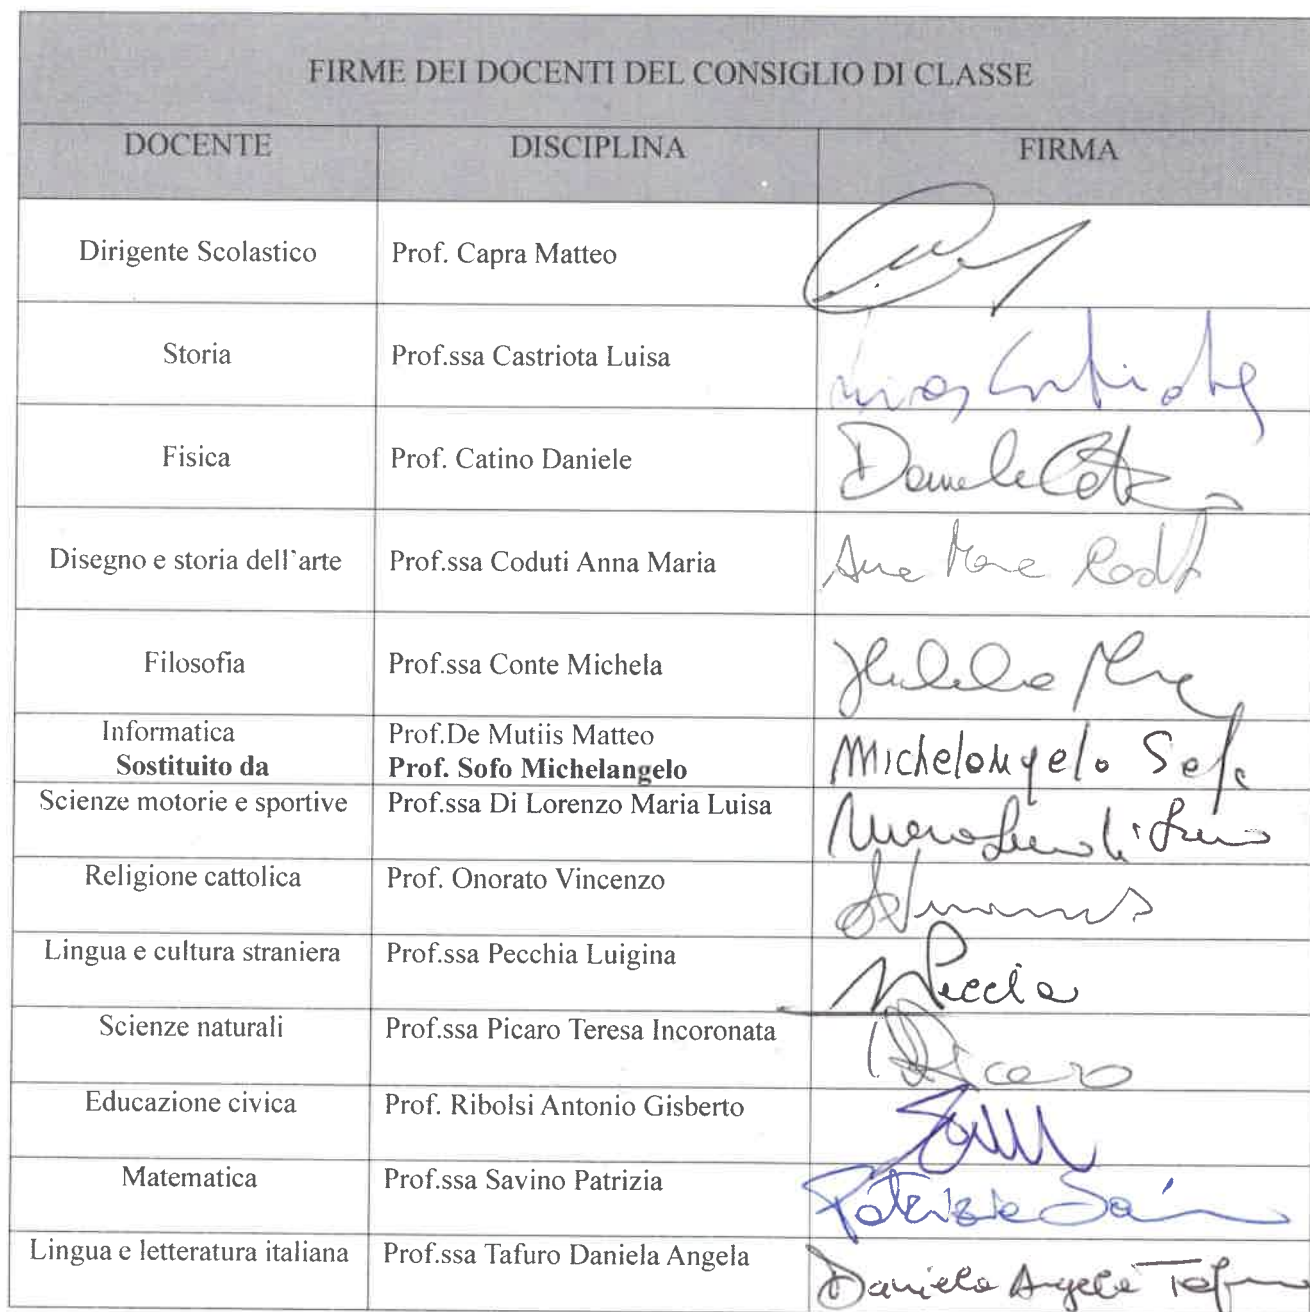 FIRME DEI DOCENTI DEL CONSIGLIO DI CLASSE
DOCENTE DISCIPLINA FIRMA
Dirigente Scolastico Prof. Capra Matteo
Storia Prof.ssa Castriota Luisa
Fisica Prof. Catino Daniele Daniele
Disegno e storia dell'arte Prof.ssa Coduti Anna Maria
Filosofia Prof.ssa Conte Michela
Informatica Prof.De Mutiis Matteo
Sostituito da Prof. Sofo Michelangelo Michelangelo Sofo
Scienze motorie e sportive Prof.ssa Di Lorenzo Maria Luisa
Religione cattolica Prof. Onorato Vincenzo
Lingua e cultura straniera Prof.ssa Pecchia Luigina
Scienze naturali Prof.ssa Picaro Teresa Incoronata Picaro
Educazione civica Prof. Ribolsi Antonio Gisberto
Matematica Prof.ssa Savino Patrizia Patrizia
Lingua e letteratura italiana Prof.ssa Tafuro Daniela Angela Daniela Angela